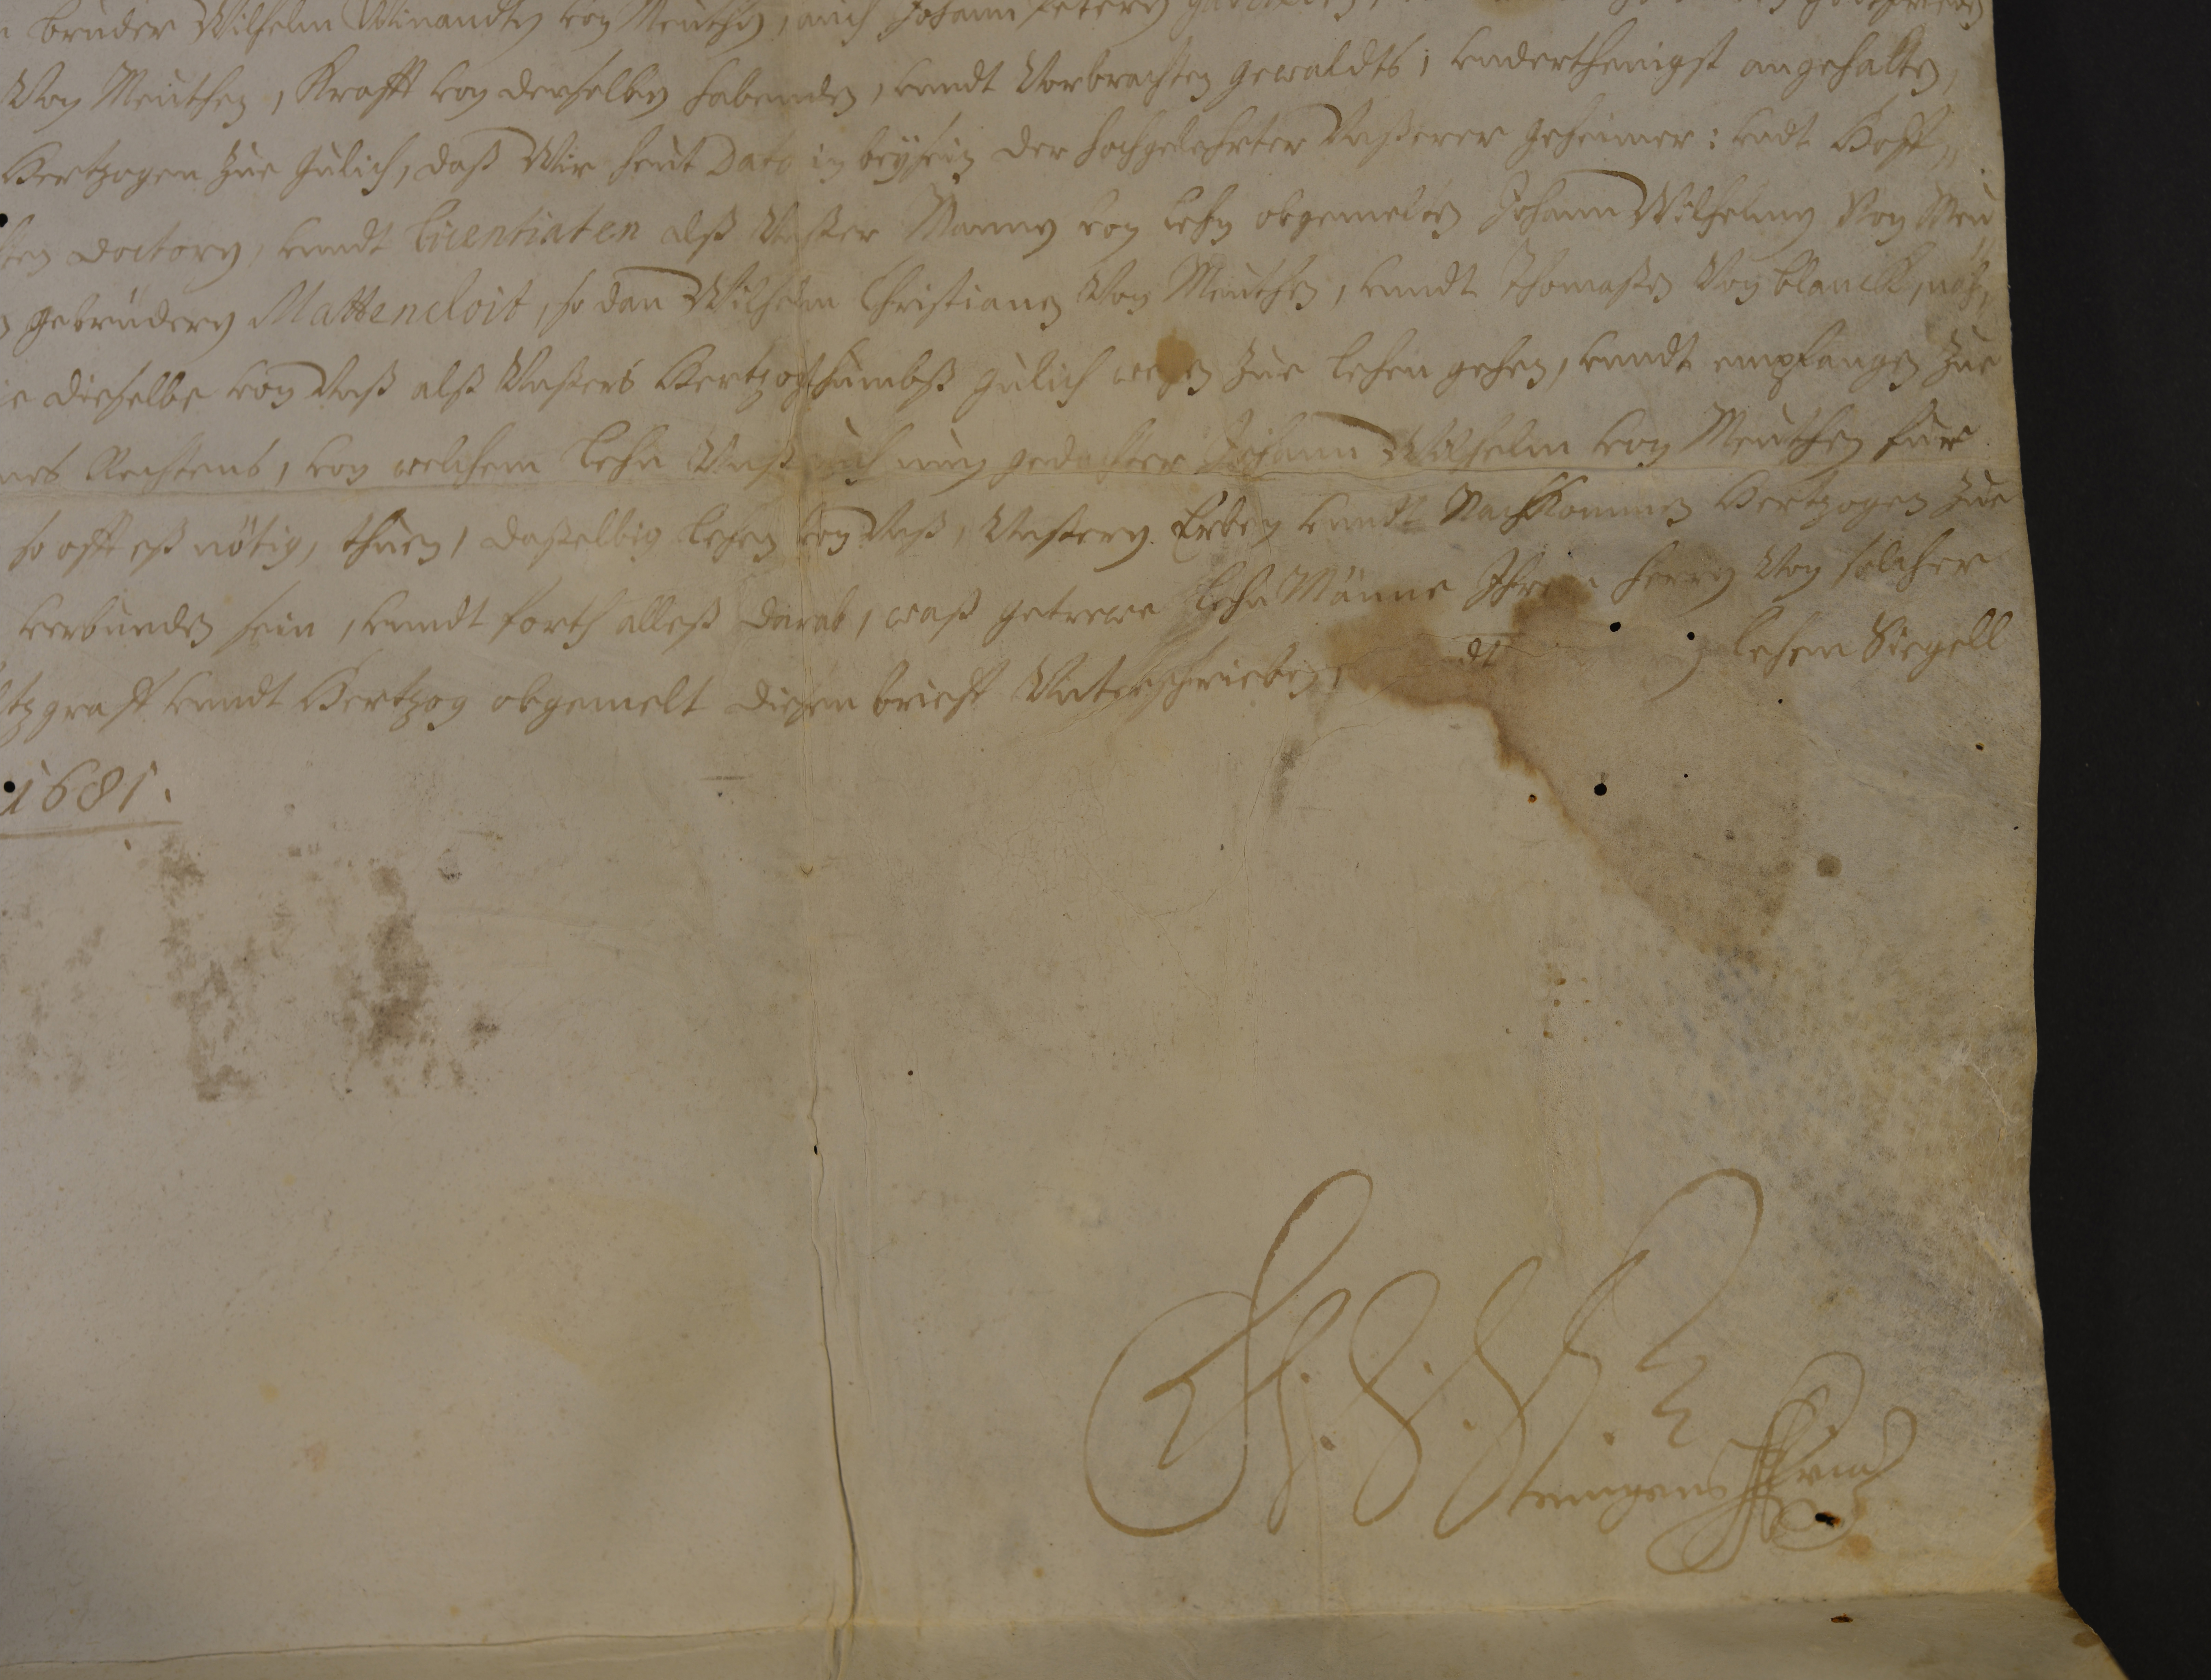 bruder Wilhelm Winandten von Meuthen, auch Johann Petern
Von Meuthen, Krafft von derselben habenden, unndt Vorbrachten gewaldts; underthenigst angehalten,
Hertzogen zue Gulich, daß Wir heut Dato in beyßein der hochgelehrter Unßerer geheimer: undt Hoff,,
Doctorn, unndt Licentiaten alß Unßer Mannen von Lehn obgemelten Johann Wilhelmen Von Meu
gebrüdern Mattencloit, so dan Wilhelm Christianen Von Meuthen, unndt Thomaßen Von Blanck
dieselbe von Unß alß Unßers Hertzogthumbß Gulich wegen zue Lehen gehen, unndt empfangen zue
Rechtens, von welchem Lehn Unß auch nun gedachter Johann Wilhelm von Meuthen für
so offt eß nötig, thuen, daßelbig Lehen von Unß, Unßern Erben unndt Nachkommen Hertzogen zue
verbunden sein, unndt forth alleß darab, waß getrewe Lehn Männe Ihren Herrn Von solcher
unndt Hertzog obgemelt diesen brieff Unterschrieben, Lehen Siegell
1681.